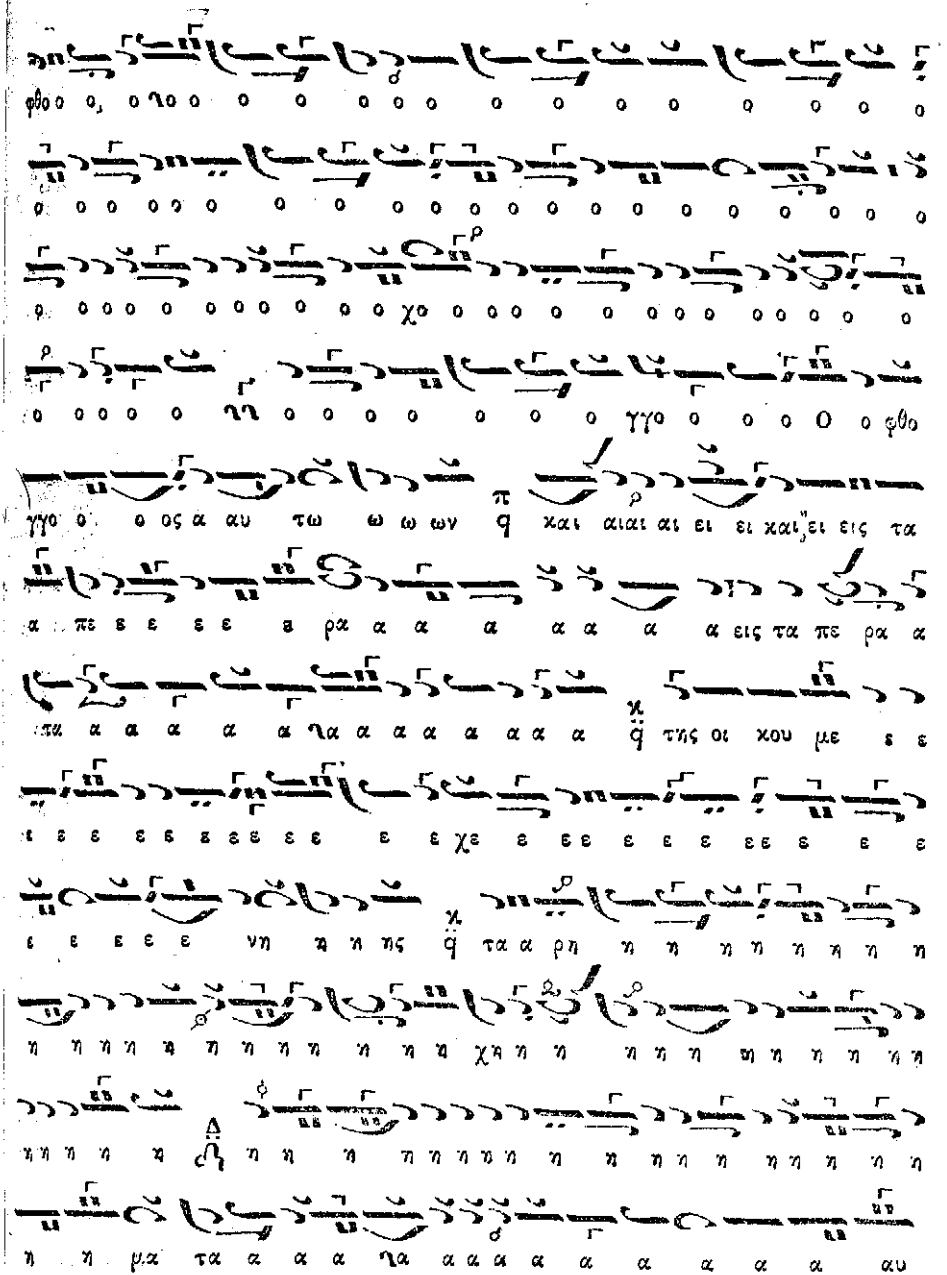 φθο ο ο, ο λο ο ο ο ο ο ο ο ο ο ο ο ο ο ο ο
ο ο ο ο ο ο ο ο ο ο ο ο ο ο ο ο ο ο ο ο ο ο ο ο
ο ο ο ο ο ο ο ο ο ο ο χο ο ο ο ο ο ο ο ο ο ο ο ο ο ο
ο ο ο ο ο γγ ο ο ο ο ο ο ο γγο ο ο ο ο Ο ο φθο
γγο ο ο ος α αυ τω ω ω ων π q και αιαι αι ει ει και, ει εις τα
α πε ε ε ε ε ε ρα α α α α α α α εις τα πε ρα α
τα α α α α α λα α α α α α α α κ q της οι κου με ε ε
ε ε ε ε ε ε ε ε ε ε ε ε χε ε ε ε ε ε ε ε ε ε ε ε
ε ε ε ε ε νη η η ης κ q τα α ρη η η η η η η η η
η η η η η η η η η η η η χη η η η η η η η η η η η η
η η η η η Δ η η η η η η η η η η η η η η η η η
η η μα τα α α α α λα α α α α α α α α α α αυ